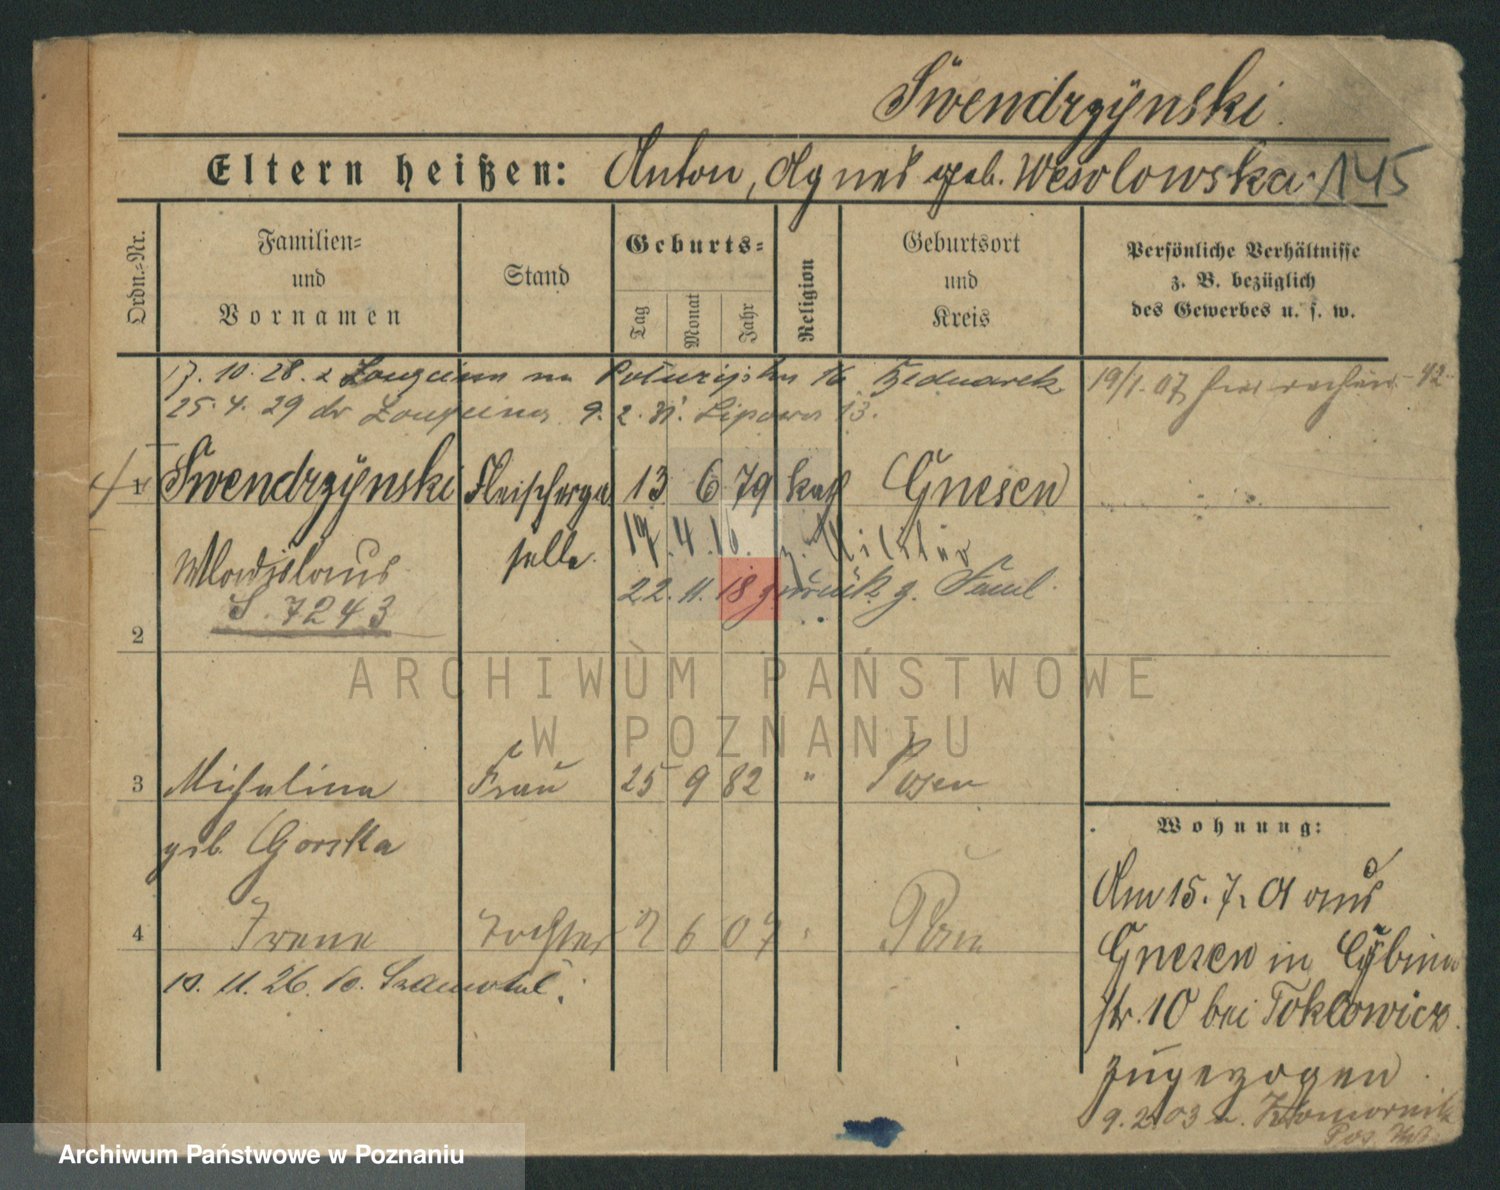 Swendrzÿnski.
Eltern heißen: Anton, Agnes geb. Wesolowska 145
Ordn.=Nr.
Familien=
und
Vornamen
Stand
Geburts=
Tag
Monat
Jahr
Religion
Geburtsort
und
Kreis
Persönliche Verhältnisse
z. B. bezüglich
des Gewerbes u. s. w.
17. 10. 28. z 16 Bednarek
19/1. 07 42
25. 4. 29 do 9. 2. 31. Lipowa 13.
1 Swendrzÿnski Fleischerge 13 6 79 kath Gnesen
Wladislaus selle. 17. 4. 16. z. Militär
S. 7243 22. 11. 18 zurück z. Famil.
2
ARCHIWUM PAŃSTWOWE
W POZNANIU
3 Michalina Frau 25 9 82 " Posen
geb. Gorska
Wohnung:
Am 15. 7. 01 aus
4 Irene Tochter 2 6 07 Posen
Gnesen in Cÿbina
10. 11. 26. Szamotuł.
str. 10 bei Toklowicz.
zugezogen
9. 2. 03 Komornik
Pos.
Archiwum Państwowe w Poznaniu